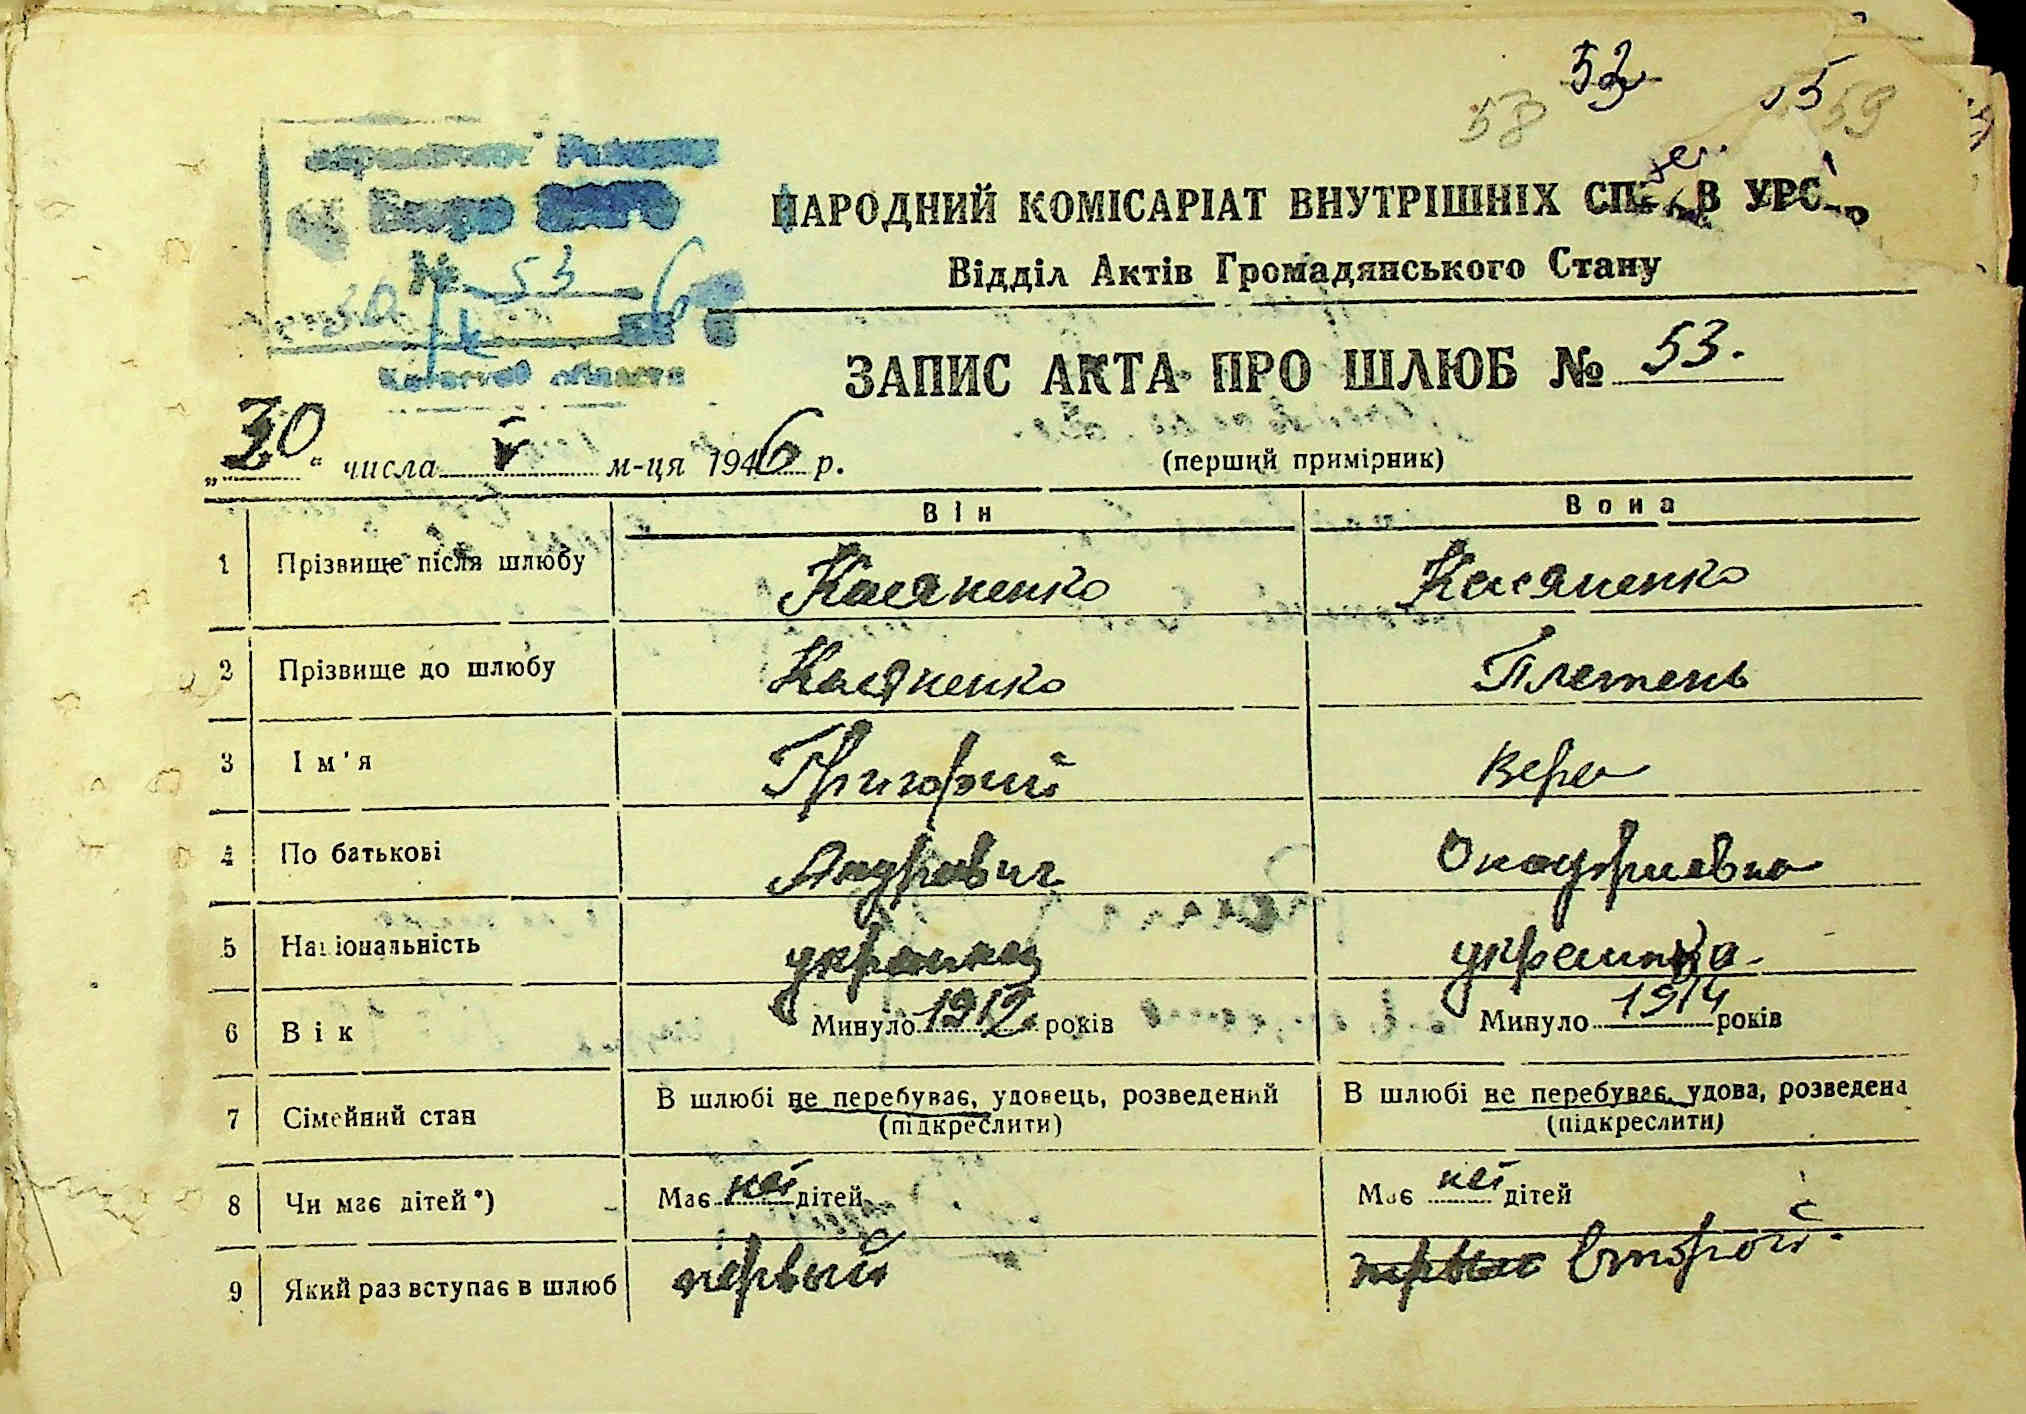 53
58
59
Бюро ЗАГС
№ 53
30
6
Киевской области
НАРОДНИЙ КОМІСАРІАТ ВНУТРІШНІХ СПРАВ УРСР
Відділ Актів Громадянського Стану
ЗАПИС АКТА ПРО ШЛЮБ № 53.
„30“ числа V м-ця 1946 р.
(перший примірник)
Він Вона
1 Прізвище після шлюбу Касяненко Касяненко
2 Прізвище до шлюбу Касяненко Плетень
3 Ім'я Григорий Вера
4 По батькові Андревич Онуфриевна
5 Національність украинец украинка
6 Вік Минуло 1912 років Минуло 1914 років
7 Сімейний стан В шлюбі не перебуває, удовець, розведений В шлюбі не перебуває, удова, розведена
(підкреслити) (підкреслити)
8 Чи має дітей*) Має неї дітей Має неї дітей
9 Який раз вступає в шлюб первый первый второй.